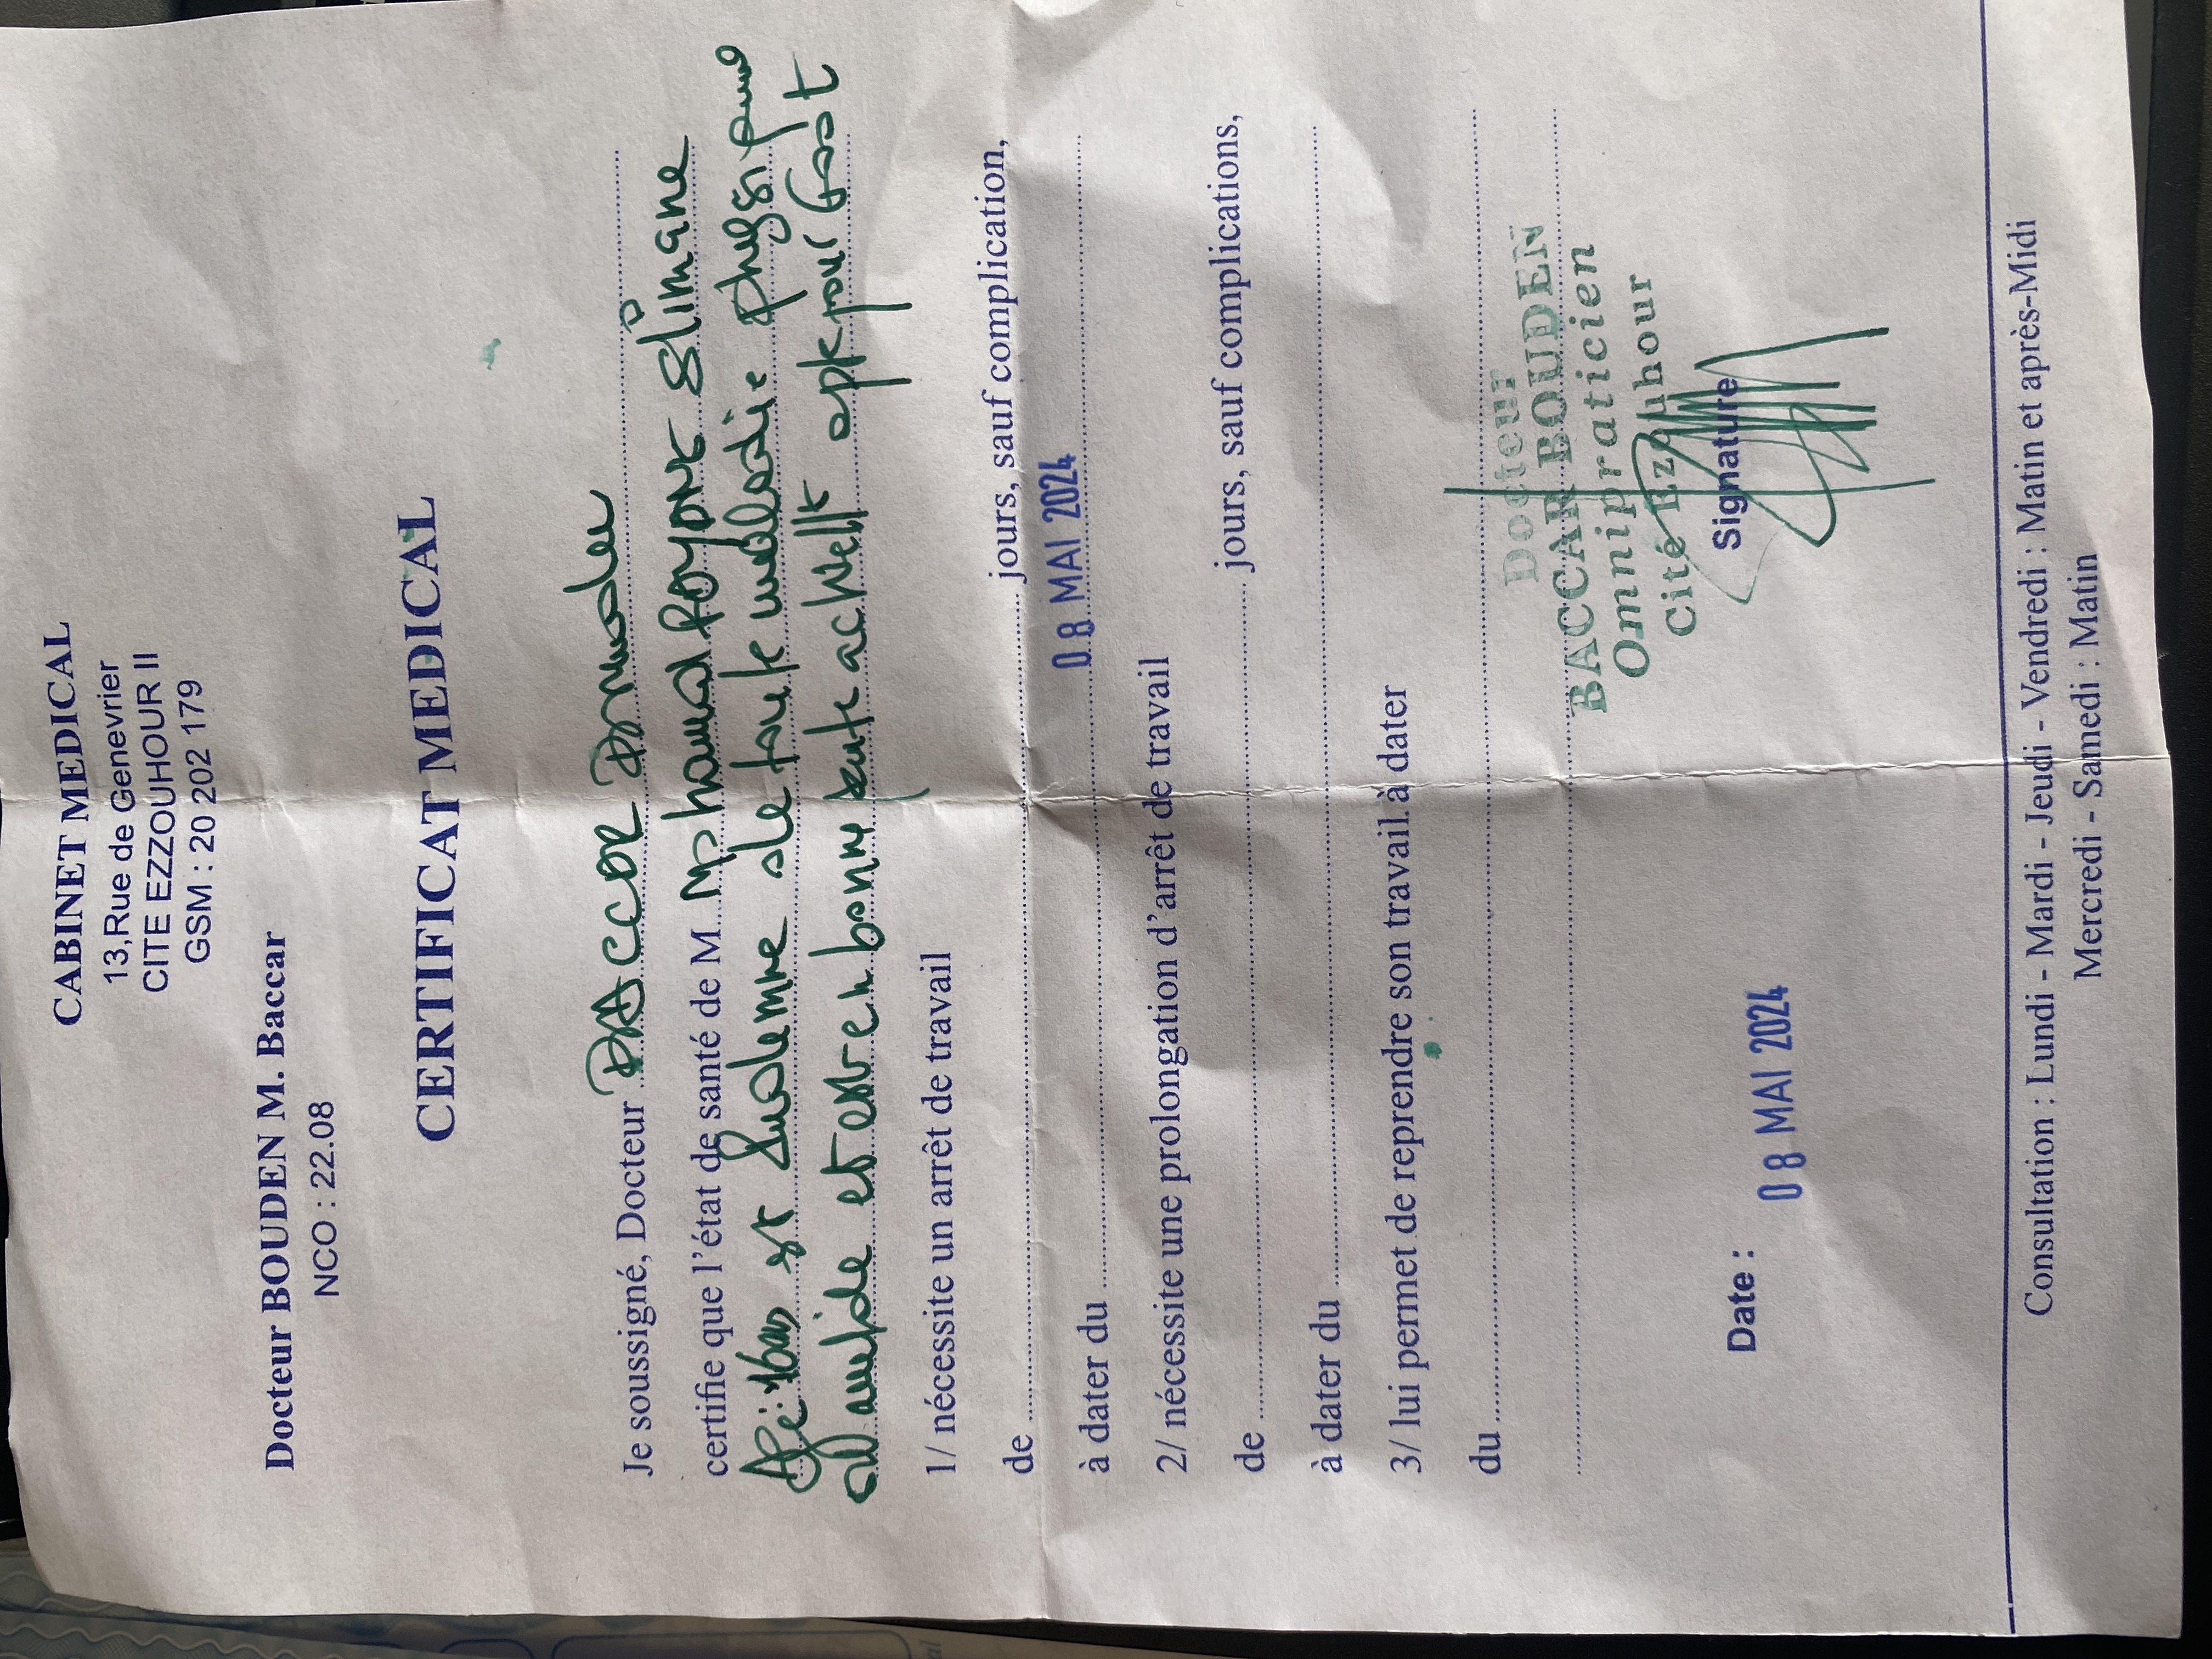 CABINET MEDICAL
13,Rue de Genevrier
CITE EZZOUHOUR II
GSM : 20 202 179
Docteur BOUDEN M. Baccar
NCO : 22.08
CERTIFICAT MEDICAL
Je soussigné, Docteur
certifie que l'état de santé de M. slimane
est indemne de toute maladie
et est en bonne sante apte pour foot
1/ nécessite un arrêt de travail
de jours, sauf complication,
à dater du 08 MAI 2024
2/ nécessite une prolongation d'arrêt de travail
de jours, sauf complications,
à dater du
3/ lui permet de reprendre son travail à dater
du
Docteur
BACCAR BOUDEN
Omnipraticien
Cité Ezzouhour
Date : 08 MAI 2024 Signature
Consultation : Lundi - Mardi - Jeudi - Vendredi : Matin et après-Midi
Mercredi - Samedi : Matin